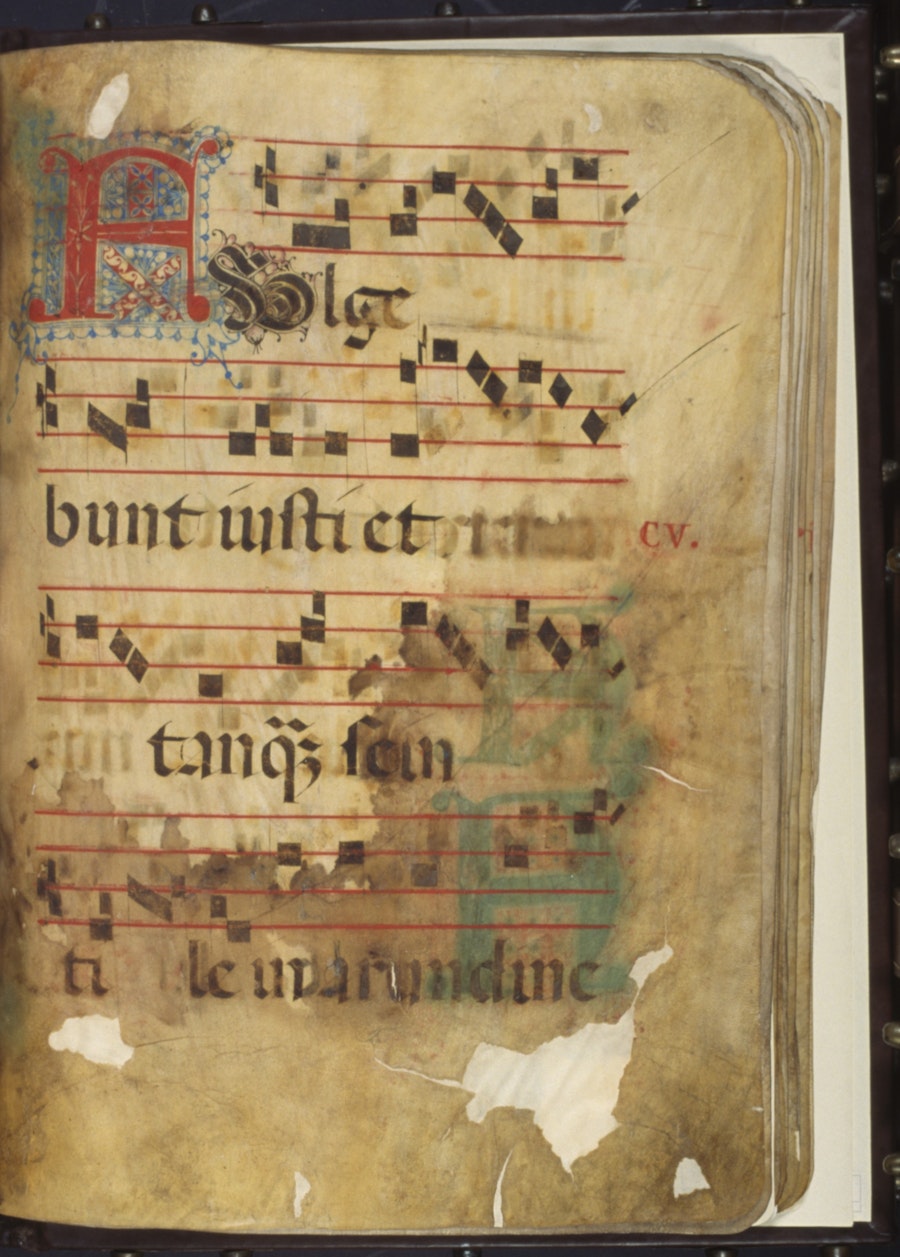 FVlge
bunt iusti et
CV.
tanq̃ʒ scin
ti le in arundine